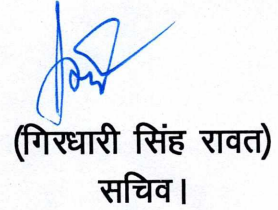 (गिरधारी सिंह रावत)
सचिव।